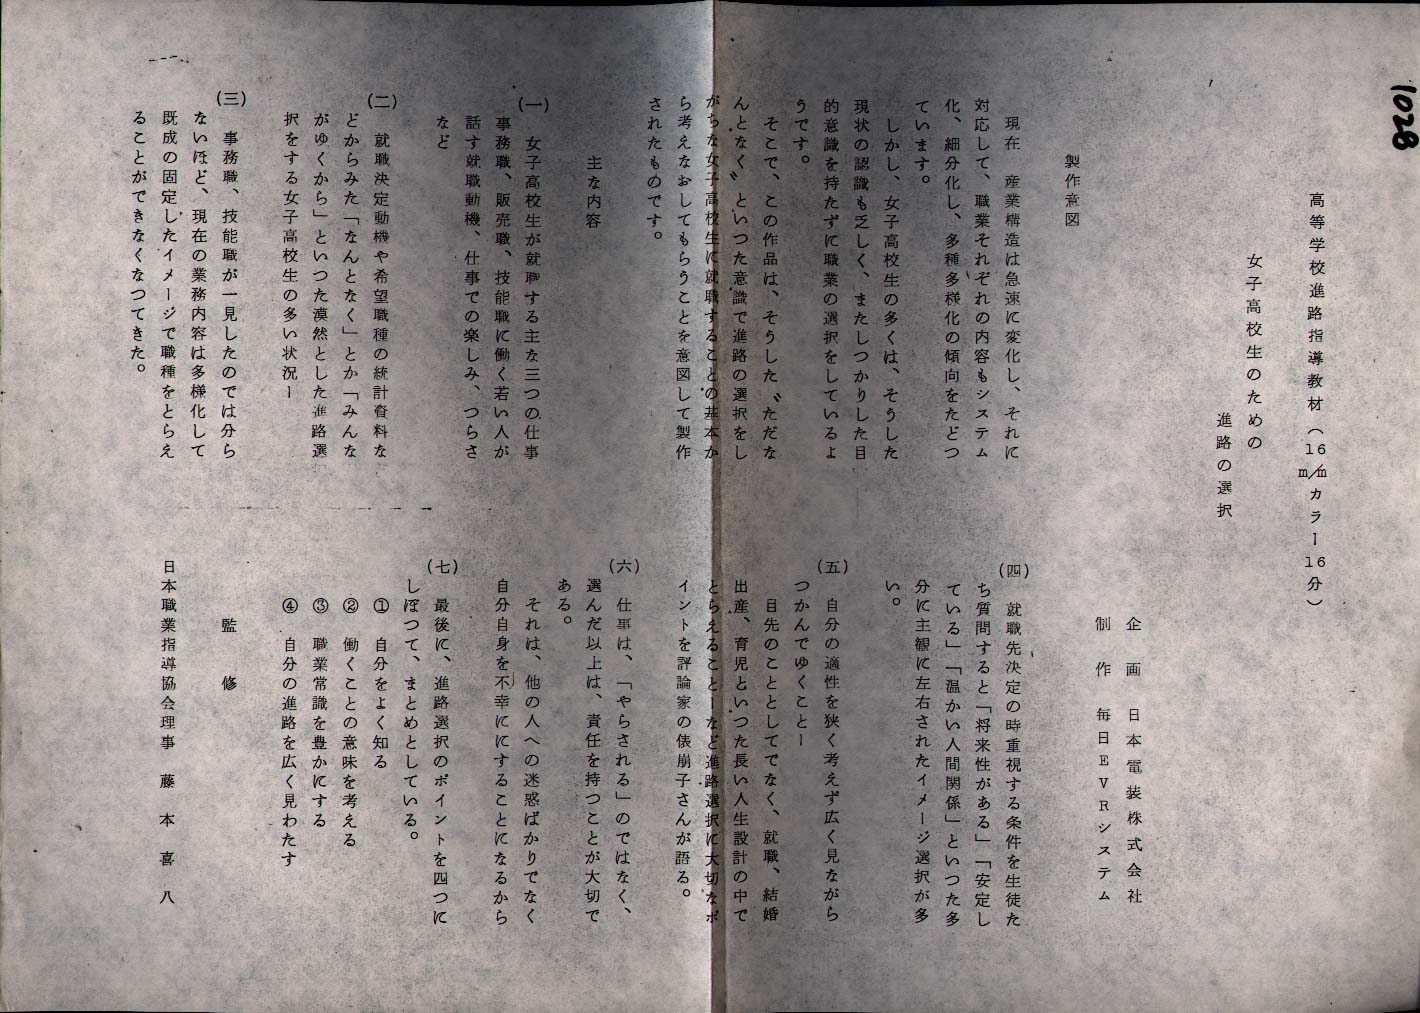 1028
高等学校進路指導教材（16m/mカラー16分）
女子高校生のための
進路の選択
企画　日本電装株式会社
制作　毎日EVRシステム
製作意図
現在　産業構造は急速に変化し、それに
対応して、職業それぞれの内容もシステム
化、細分化し、多種多様化の傾向をたどつ
ています。
しかし、女子高校生の多くは、そうした
現状の認識も乏しく、またしつかりした目
的意識を持たずに職業の選択をしているよ
うです。
そこで、この作品は、そうした〝ただな
んとなく〟といつた意識で進路の選択をし
がちな女子高校生に就職することの基本か
ら考えなおしてもらうことを意図して製作
されたものです。
主な内容
(一)　女子高校生が就職する主な三つの仕事
事務職、販売職、技能職に働く若い人が
話す就職動機、仕事での楽しみ、つらさ
など
(二)　就職決定動機や希望職種の統計資料な
どからみた「なんとなく」とか「みんな
がゆくから」といつた漠然とした進路選
択をする女子高校生の多い状況ー
(三)　事務職、技能職が一見したのでは分ら
ないほど、現在の業務内容は多様化して
既成の固定したイメージで職種をとらえ
ることができなくなつてきた。
(四)　就職先決定の時重視する条件を生徒た
ち質問すると「将来性がある」「安定し
ている」「温かい人間関係」といつた多
分に主観に左右されたイメージ選択が多
い。
(五)　自分の適性を狭く考えず広く見ながら
つかんでゆくことー
目先のこととしてでなく、就職、結婚
出産、育児といつた長い人生設計の中で
とらえることーなど進路選択に大切なポ
イントを評論家の俵崩子さんが語る。
(六)　仕事は、「やらされる」のではなく、
選んだ以上は、責任を持つことが大切で
ある。
それは、他の人への迷惑ばかりでなく
自分自身を不幸ににすることになるから
(七)　最後に、進路選択のポイントを四つに
しぼつて、まとめとしている。
①　自分をよく知る
②　働くことの意味を考える
③　職業常識を豊かにする
④　自分の進路を広く見わたす
監修
日本職業指導協会理事　藤本喜八